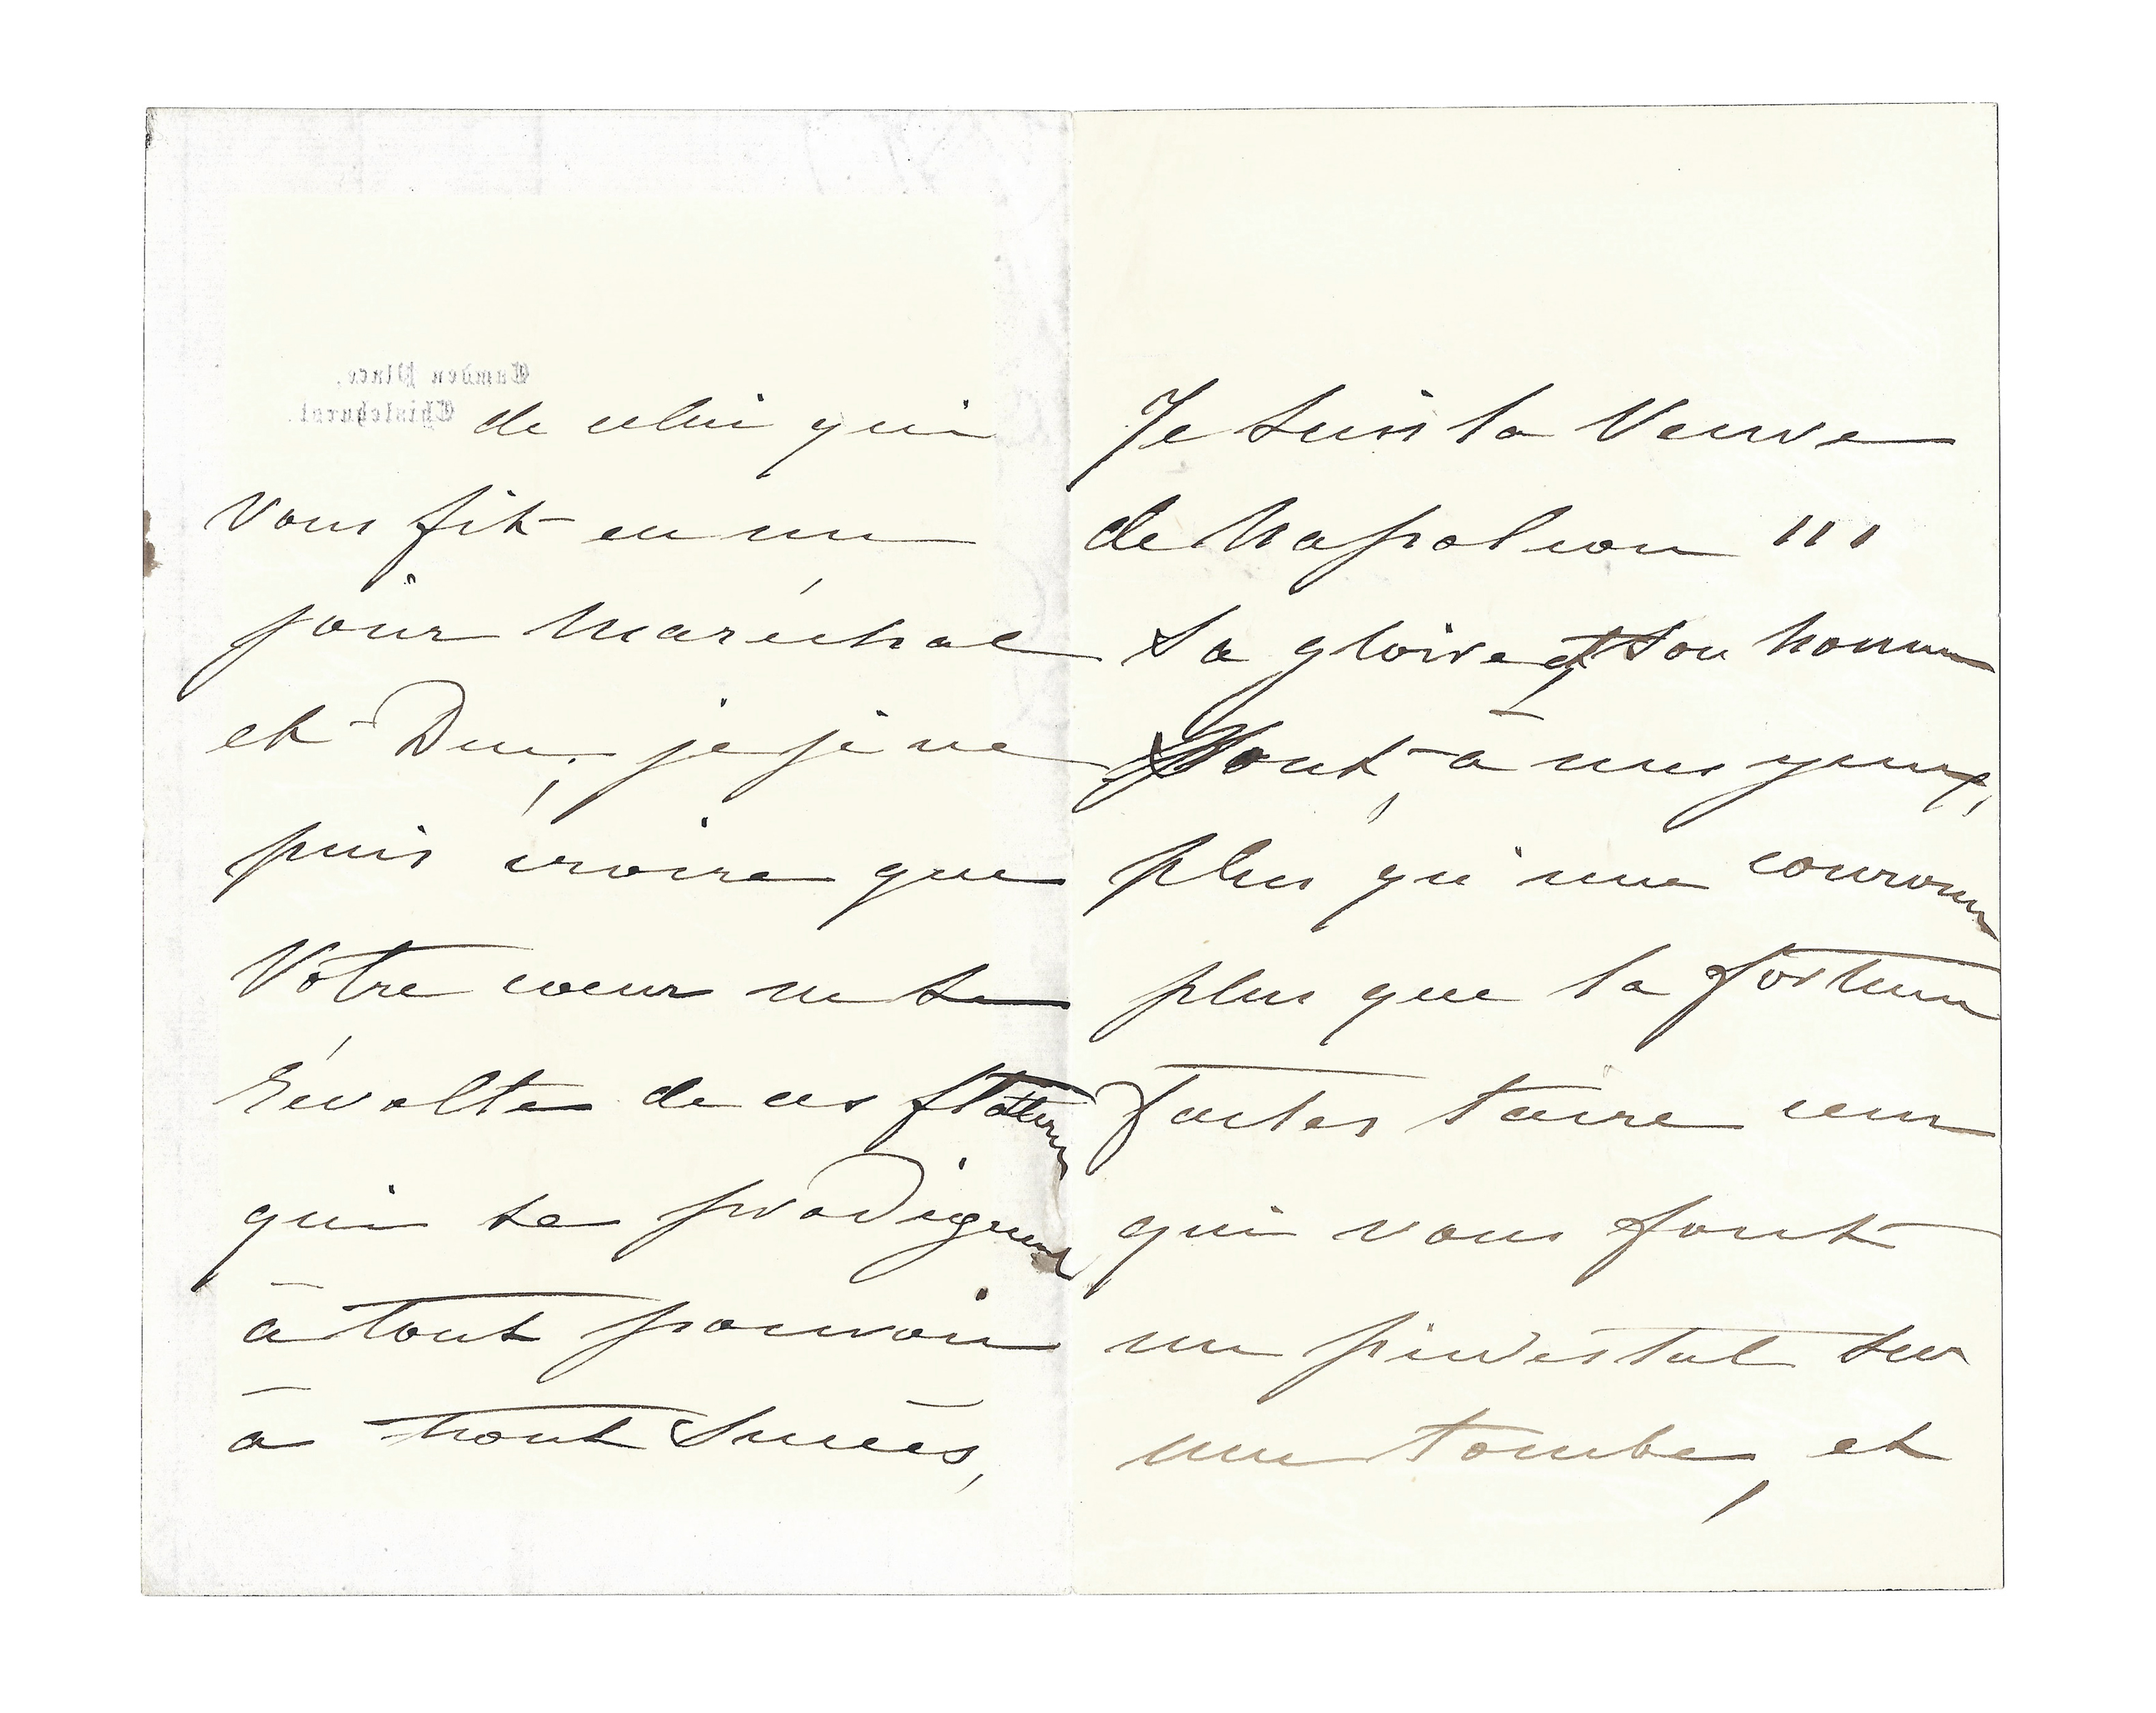 Camden Place.
Chislehurst.
de celui qui
vous fit en un
jour Maréchal
et Duc, je je ne
puis croire que
Votre cœur ne se
révolte de ces flatteries
qui se prodiguent
à tout pouvoir
à tout Succès,
Je suis la Veuve
de Napoléon III
Sa gloire et son honneur
Sont à mes yeux,
plus qu'une couronne
plus que la fortune
faites taire ceux
qui vous font
un piedestal sur
une tombe, et